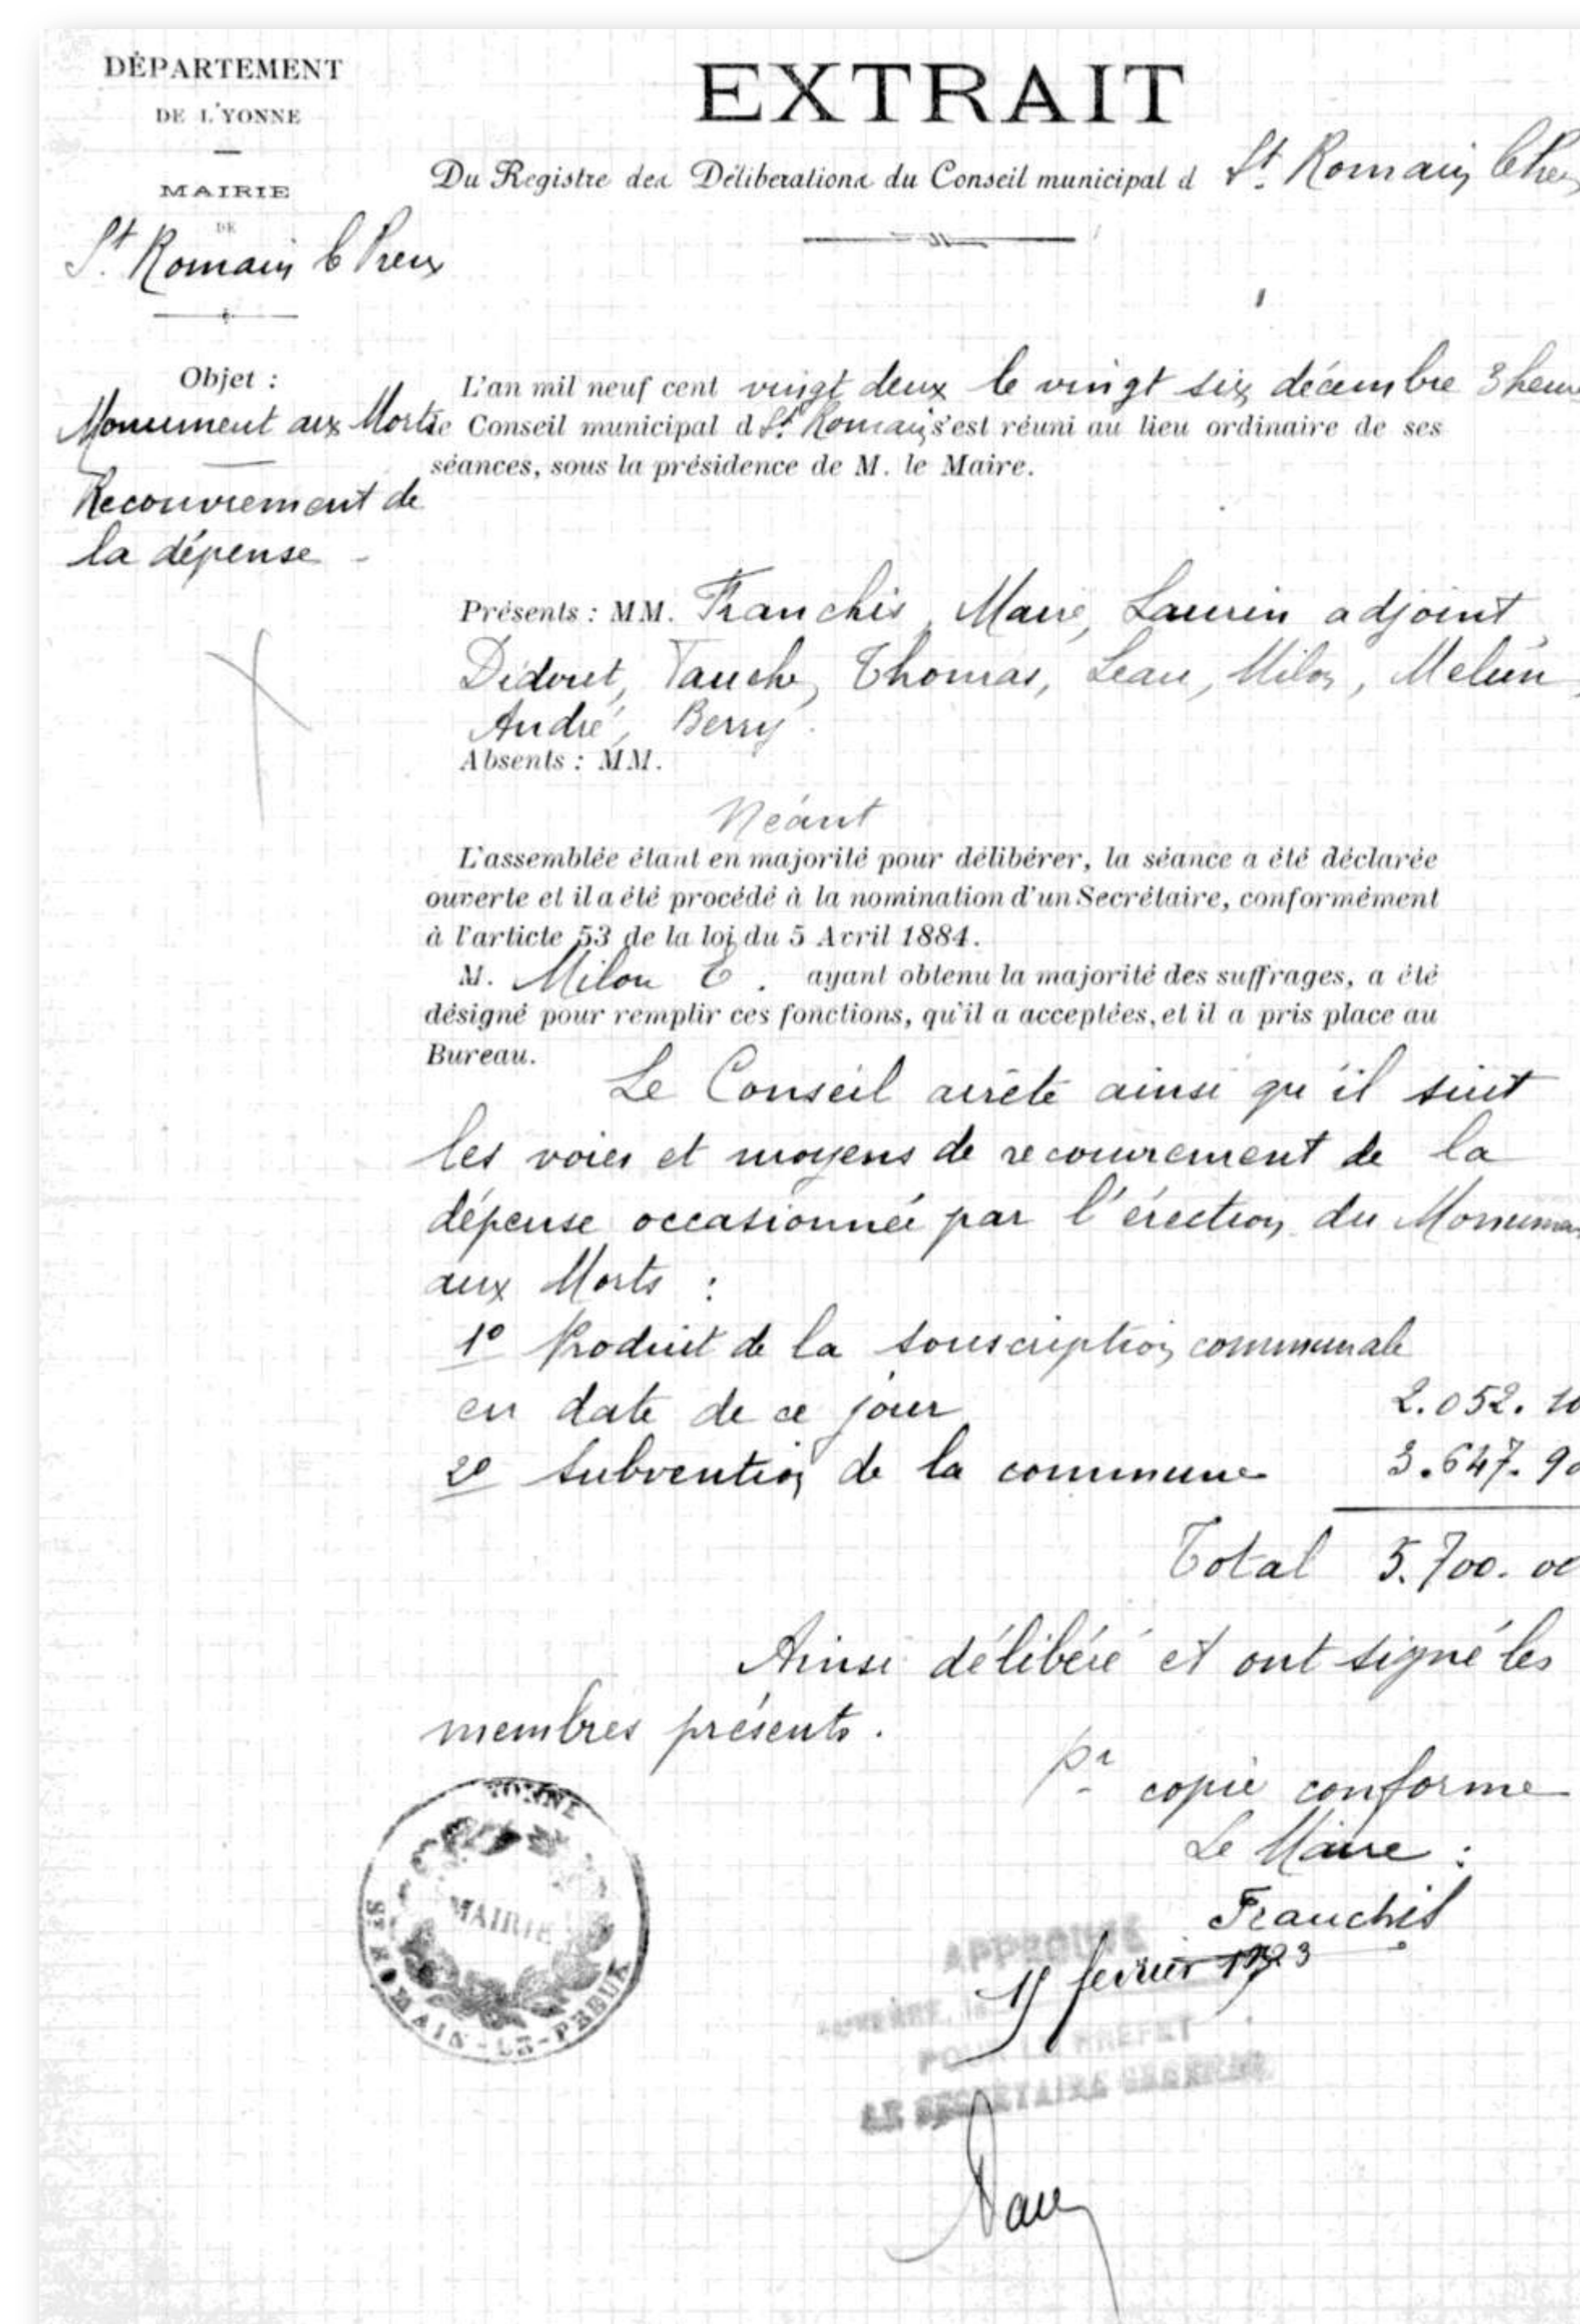 DÉPARTEMENT
DE L'YONNE
MAIRIE
DE
St Romain le Preux
EXTRAIT
Du Registre des Délibérations du Conseil municipal d St Romain le Preu
Objet :
Monument aux Morts
Recouvrement de
la dépense
L'an mil neuf cent vingt deux le vingt six décembre 3 heu
le Conseil municipal d St Romain s'est réuni au lieu ordinaire de ses
séances, sous la présidence de M. le Maire.
Présents : MM. Franchis, Maire, Laurin adjoint,
Didout, Tauche, Thomas, Leau, Milon, Melun,
André, Berry.
Absents : MM.
Néant
L'assemblée étant en majorité pour délibérer, la séance a été déclarée
ouverte et il a été procédé à la nomination d'un Secrétaire, conformément
à l'article 53 de la loi du 5 Avril 1884.
M. Milon E. ayant obtenu la majorité des suffrages, a été
désigné pour remplir ces fonctions, qu'il a acceptées, et il a pris place au
Bureau.
Le Conseil arrête ainsi qu'il suit
les voies et moyens de recouvrement de la
dépense occasionnée par l'érection du Monumen
aux Morts :
1o Produit de la souscription communale
en date de ce jour 2.052. 10
2o Subvention de la commune 3.647. 90
Total 5.700. 00
Ainsi délibéré et ont signé les
membres présents.
Pr copie conforme
Le Maire :
Franchis
YONNE
MAIRIE
ST ROMAIN-LE-PREUX
APPROUVÉ
AUXERRE, le 15 février 1923
POUR LE PREFET
LE SECRETAIRE GENERAL